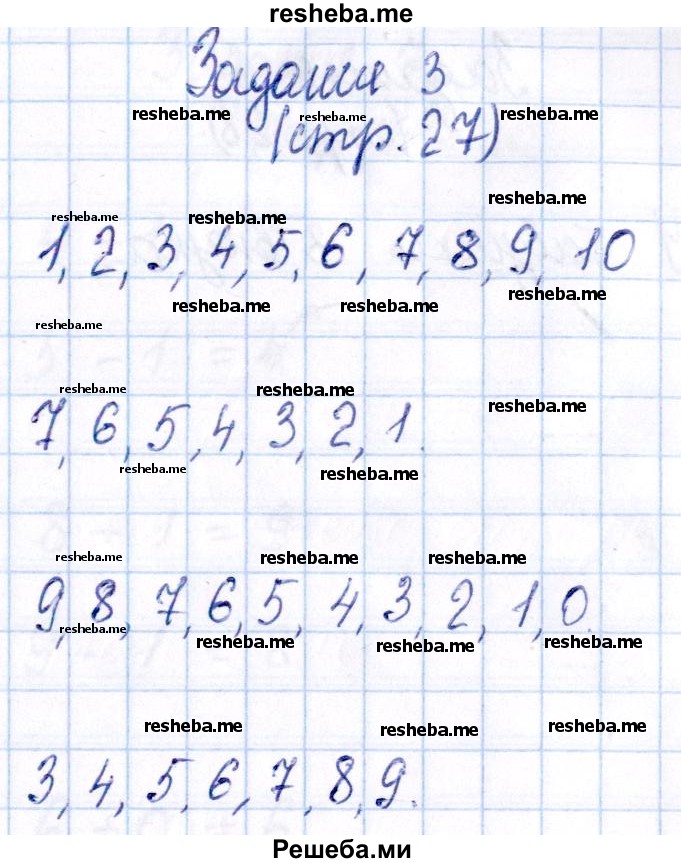 resheba.me
Задание 3
resheba.me resheba.me resheba.me
(стр. 27)
resheba.me
resheba.me resheba.me
1, 2, 3, 4, 5, 6, 7, 8, 9, 10
resheba.me resheba.me resheba.me
resheba.me
resheba.me resheba.me resheba.me
7, 6, 5, 4, 3, 2, 1.
resheba.me resheba.me
resheba.me resheba.me resheba.me
9, 8, 7, 6, 5, 4, 3, 2, 1, 0.
resheba.me resheba.me resheba.me resheba.me
resheba.me resheba.me resheba.me
3, 4, 5, 6, 7, 8, 9.
Решеба.ми